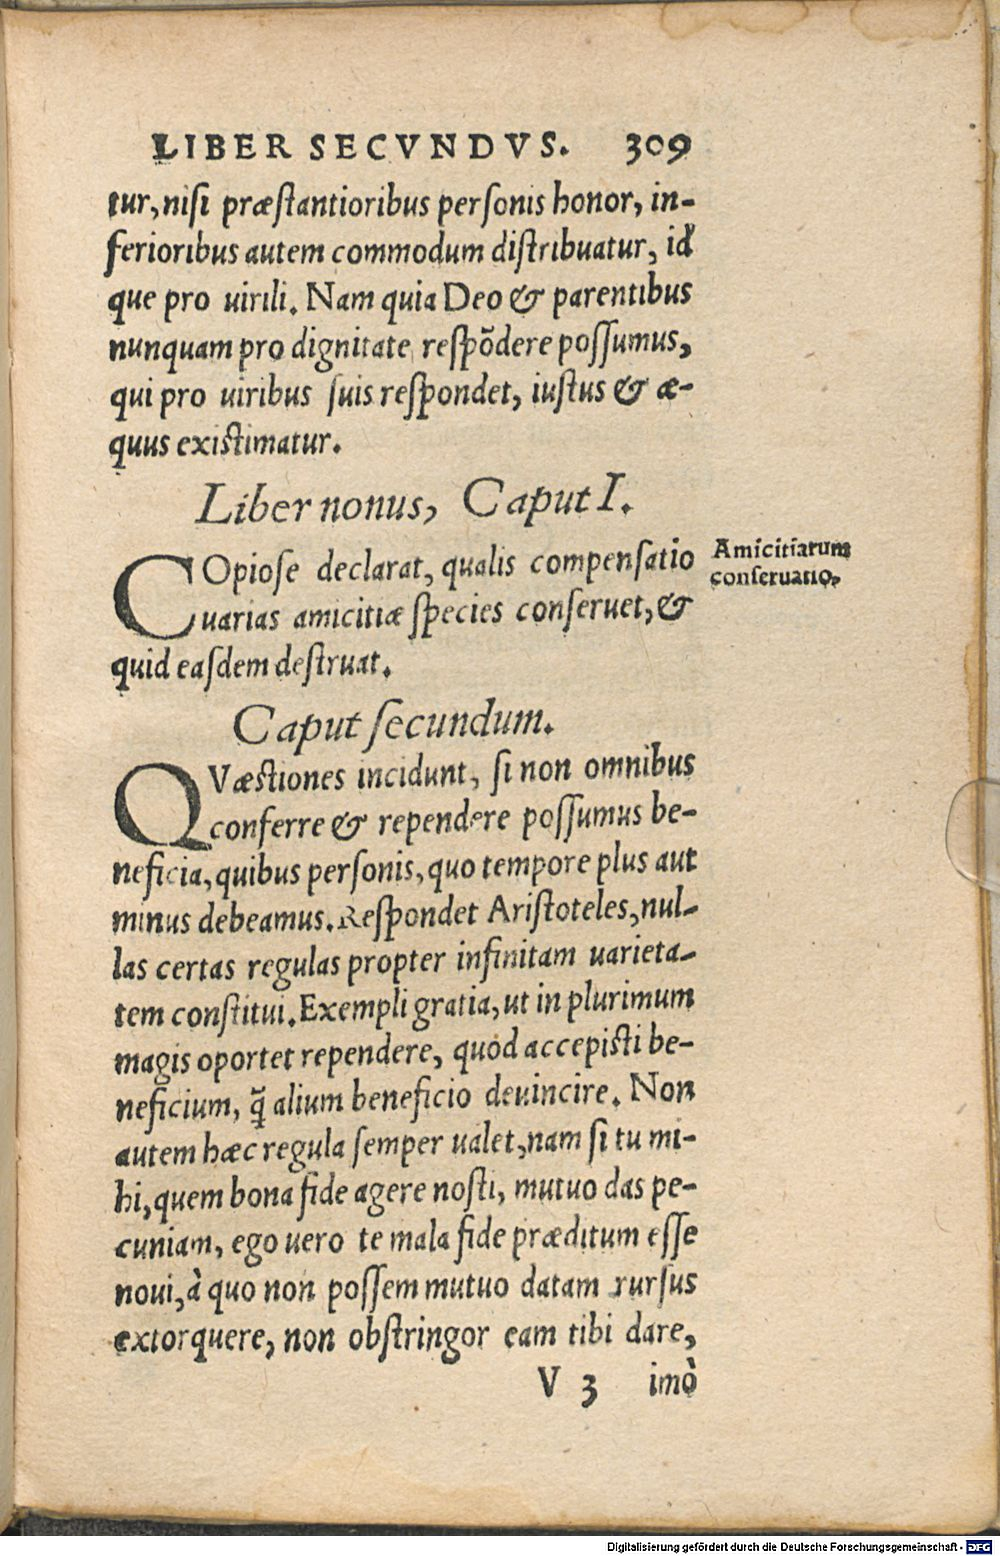 LIBER SECVNDVS. 309
tur, nisi præstantioribus personis honor, in-
ferioribus autem commodum distribuatur, id
que pro uirili. Nam quia Deo & parentibus
nunquam pro dignitate respõdere possumus,
qui pro uiribus suis respondet, iustus & æ-
quus existimatur.
Liber nonus, Caput I.
COpiose declarat, qualis compensatio
uarias amicitiæ species conseruet, &
quid easdem destruat.
Amicitiarum
conseruatio.
Caput secundum.
QVæstiones incidunt, si non omnibus
conferre & rependere possumus be-
neficia, quibus personis, quo tempore plus aut
minus debeamus. Respondet Aristoteles, nul-
las certas regulas propter infinitam uarieta-
tem constitui. Exempli gratia, ut in plurimum
magis oportet rependere, quod accepisti be-
neficium, q̃ alium beneficio deuincire. Non
autem hæc regula semper ualet, nam si tu mi-
hi, quem bona fide agere nosti, mutuo das pe-
cuniam, ego uero te mala fide præditum esse
noui, à quo non possem mutuo datam rursus
extorquere, non obstringor eam tibi dare,
V 3 imò
Digitalisierung gefördert durch die Deutsche Forschungsgemeinschaft - DFG